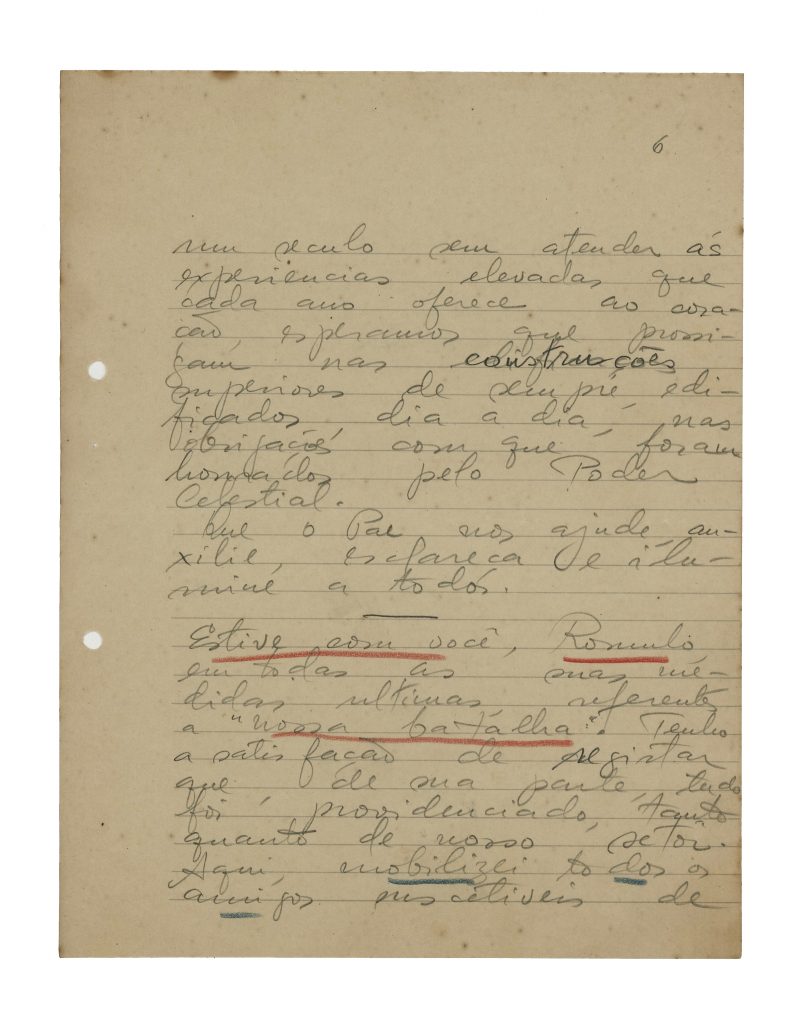 6
um seculo sem atender ás
experiencias elevadas que
cada ano oferece ao cora-
ção, esperamos que prossi-
gam nas construcções
superiores de sempre, edi-
ficados, dia a dia, nas
obrigações com que foram
honrados pelo Poder
Celestial.
Que o Pae nos ajude, au-
xilie, esclareça e ilu-
mine a todos.
Estive com você, Romulo,
em todas as suas me-
didas ultimas, referentes
a "nossa batalha". Tenho
a satisfação de registar
que, de sua parte, tudo
foi providenciado, tanto
quanto de nosso setôr.
Aqui, mobilizei todos os
amigos suscetiveis de